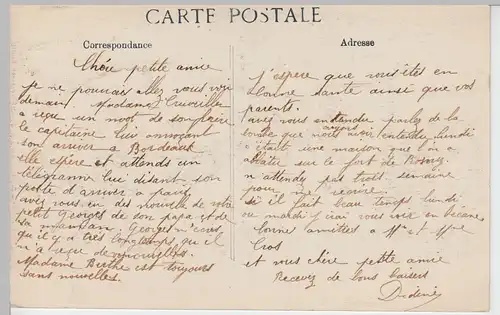 CARTE POSTALE
Correspondance
Adresse
Chère petite amie
je ne pourrais allez vous voir
demain! Madame
a reçu un mot de son
le capitaine lui annoçant
son arriver a Bordeaux
elle espère et attends un
télégramme lui disant son
arriver a paris
avez vous eu des nouvelle de votre
petit Georges de son papa et de
sa maman Georges
qu'il y a très longtemps que il
n'a reçue de nouvelles.
Madame Berthe est toujours
sans nouvelles.
j'espère que vous êtes en
bonne sante ainsi que vos
parents.
avez vous entendue parlez de la
que nous avons entendue, lundi
c'était une maison que l'on a
sur le fort de
n'attendez pas trois semaine
pour me recrire
si il fait beau temps lundi
ou mardi j'irai vous voir en bécane
bonnes amitiées a Mr et Mme
Cros
et vous chère petite amie
Recevez de bons baisers